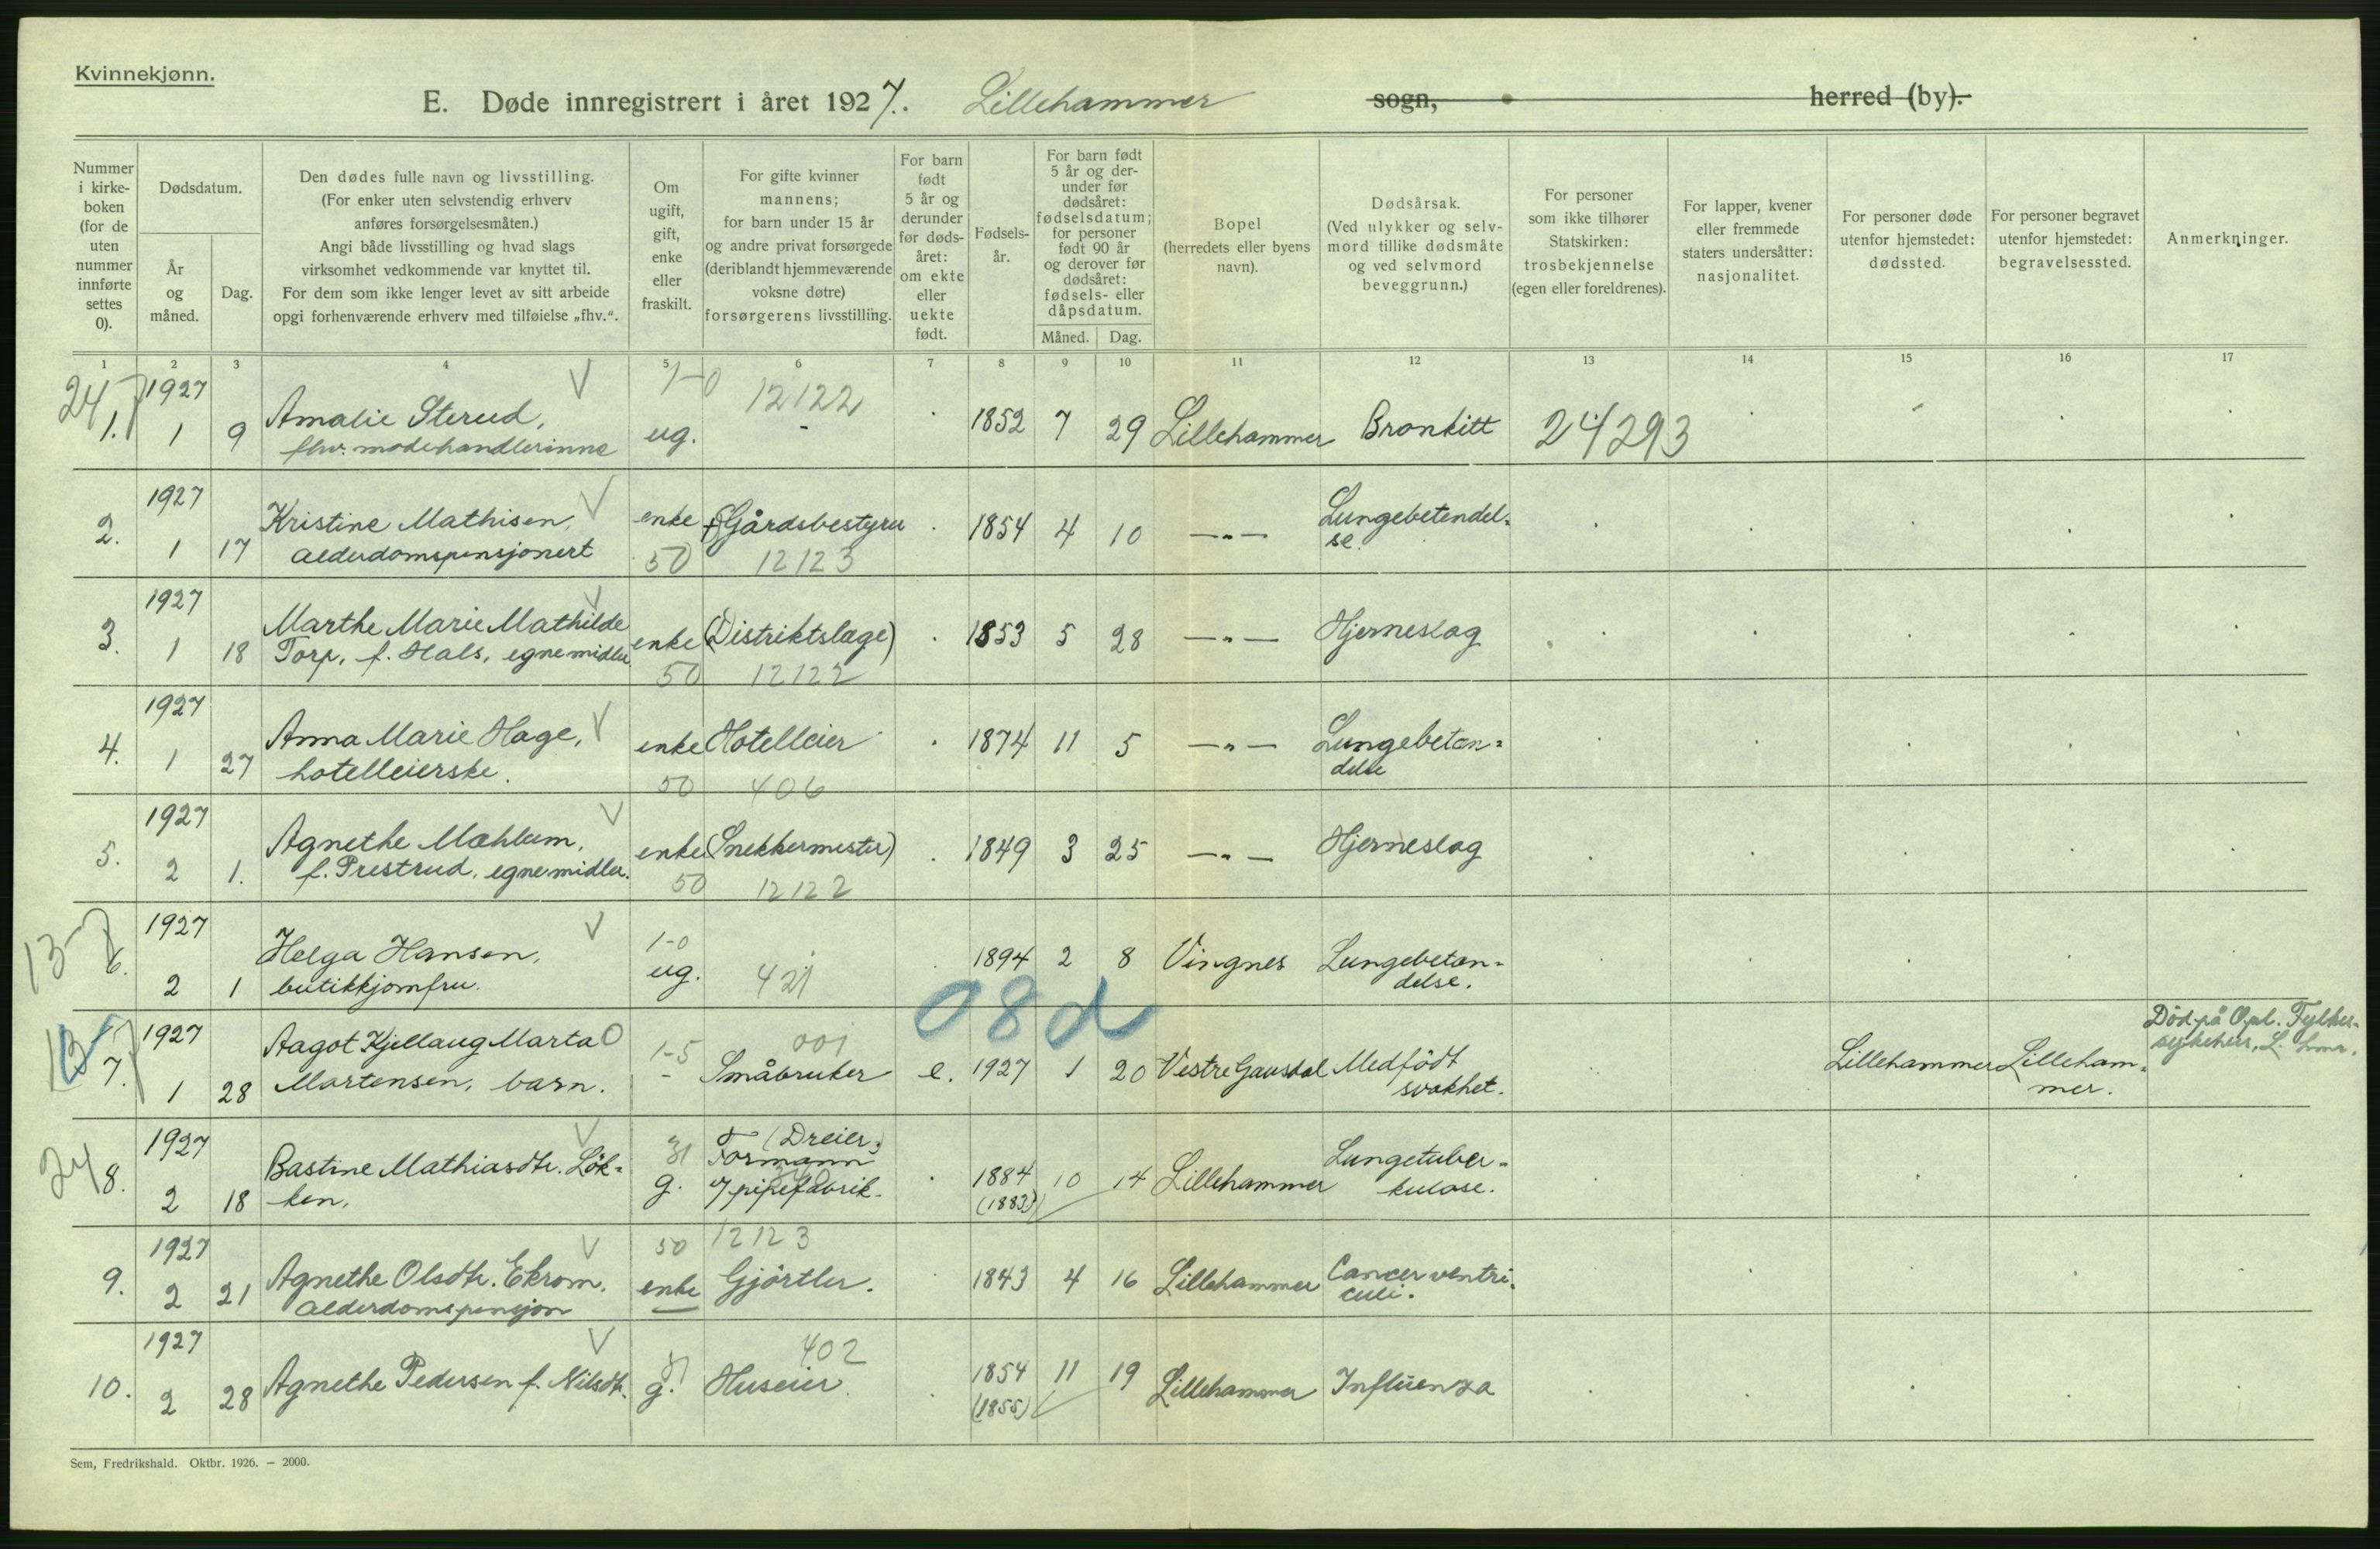 Kvinnekjønn.
E. Døde innregistrert i året 1927. Lillehammer sogn, herred (by).
Nummer i kirke-boken (for de uten nummer innførte settes 0).
Dødsdatum.
År og måned.
Dag.
Den dødes fulle navn og livsstilling.
(For enker uten selvstendig erhverv
anføres forsørgelsesmåten.)
Angi både livsstilling og hvad slags
virksomhet vedkommende var knyttet til.
For dem som ikke lenger levet av sitt arbeide
opgi forhenværende erhverv med tilføielse „fhv.“.
Om ugift, gift, enke eller fraskilt.
For gifte kvinner
mannens;
for barn under 15 år
og andre privat forsørgede
(deriblandt hjemmeværende
voksne døtre)
forsørgerens livsstilling.
For barn født 5 år og derunder før døds-året: om ekte eller uekte født.
Fødsels-år.
For barn født
5 år og der-
under før
dødsåret:
fødselsdatum;
for personer
født 90 år
og derover før
dødsåret:
fødsels- eller
dåpsdatum.
Måned. Dag.
Bopel
(herredets eller byens
navn).
Dødsårsak.
(Ved ulykker og selv-
mord tillike dødsmåte
og ved selvmord
beveggrunn.)
For personer
som ikke tilhører
Statskirken:
trosbekjennelse
(egen eller foreldrenes).
For lapper, kvener
eller fremmede
staters undersåtter:
nasjonalitet.
For personer døde
utenfor hjemstedet:
dødssted.
For personer begravet
utenfor hjemstedet:
begravelsessted.
Anmerkninger.
1 2 3 4 5 6 7 8 9 10 11 12 13 14 15 16 17
24-7 1927 V 1-0 12122
1. 1 9 Amalie Sterud, ug. - 1852 7 29 Lillehammer Bronkitt 24293
fhv. modehandlerinne
1927 V
2. 1 17 Kristine Mathisen, enke Gårdsbestyrer 1854 4 10 —"— Lungebetendel-
alderdomspensjonert 50 12123 se.
1927 V
3. 1 18 Marthe Marie Mathilde enke (Distriktslæge) 1853 5 28 —"— Hjerneslag
Torp, f. Hals, egne midler 50 12122
1927 V
4. 1 27 Anna Marie Hage, enke Hotelleier 1874 11 5 —"— Lungebetæn-
hotelleierske. 50 406 delse
1927 V
5. 2 1. Agnethe Mæhlum, enke (Snekkermester) 1849 3 25 —"— Hjerneslag
f. Prestrud, egne midler. 50 12122
13-7 1927 V 1-0
6. 2 1 Helga Hansen, ug. 421 1894 2 8 Vingnes Lungebetæn-
butikkjomfru. delse.
08d
13-7 1927 O 1-5 001 Død på Opl. Fylkes-
7. 1 28 Aagot Kjellaug Marta - Småbruker e. 1927 1 20 Vestre Gausdal Medfödt Lillehammer Lilleham-
Martensen, barn. svakhet. mer.
24 1927 V 31 (Dreier)
8. 2 18 Bastine Mathiasdtr. Lök- g. Formann 1884 10 14 Lillehammer Lungetuber-
ken. pipefabrik. (1883) kulose.
1927 V 50 12123
9. 2 21 Agnethe Olsdtr. Ekrom, enke Gjörtler. 1843 4 16 Lillehammer Cancer ventri-
alderdomspensjon culi.
1927 V 402
10. 2 28 Agnethe Pedersen f. Nilsdtr. g. Huseier. 1854 11 19 Lillehammer Influenza
(1855)
Sem, Fredrikshald. Oktbr. 1926. — 2000.